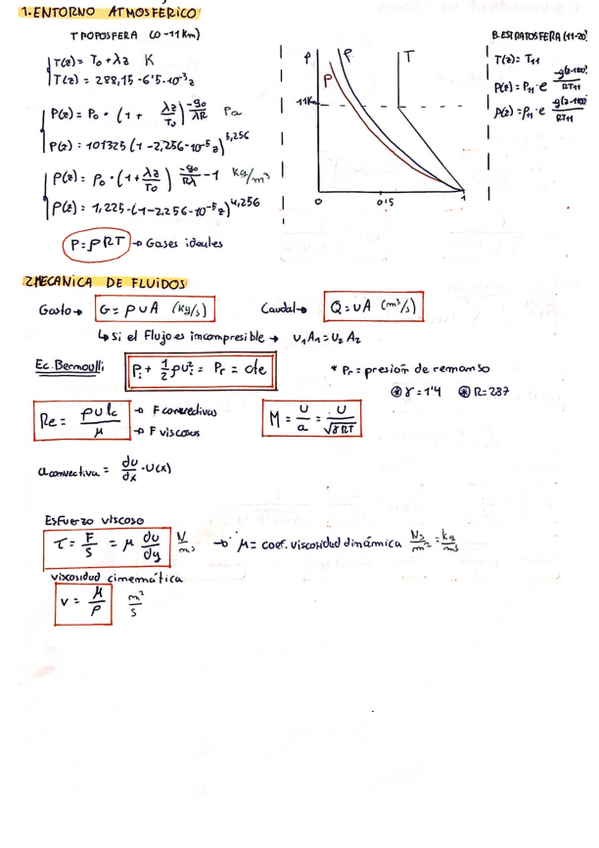 1. ENTORNO ATMOSFÉRICO
TROPOSFERA (0-11 Km)
T(z) = T₀ + λz K
T(z) = 288,15 - 6'5·10⁻³z
P(z) = P₀ · (1 + λz/T₀)^(-g₀/λR) Pa
P(z) = 101325 (1 - 2,256·10⁻⁵z)^5,256
ρ(z) = ρ₀ · (1 + λz/T₀)^(-g₀/Rλ - 1) Kg/m³
ρ(z) = 1,225·(1 - 2,256·10⁻⁵z)^4,256
P = ρRT → Gases ideales
P
ρ
P
T
11Km
0
0'5
1
B. ESTRATOSFERA (11-20)
T(z) = T₁₁
2. MECANICA DE FLUIDOS
Gasto → G = ρUA (kg/s) Caudal → Q = UA (m³/s)
↳ Si el flujo es incompresible → U₁A₁ = U₂A₂
Ec. Bernoulli Pᵢ + 1/2 ρUᵢ² = Pr = cte * Pr = presión de remanso
⊛ γ = 1'4 ⊛ R = 287
Re = ρUlc/μ → F convectivas → F viscosas M = U/a = U/√γRT
a convectiva = du/dx · U(x)
Esfuerzo viscoso
τ = F/S = μ du/dy N/m² → μ = coef. viscosidad dinámica Ns/m² = kg/ms
viscosidad cinemática
ν = μ/ρ m²/s